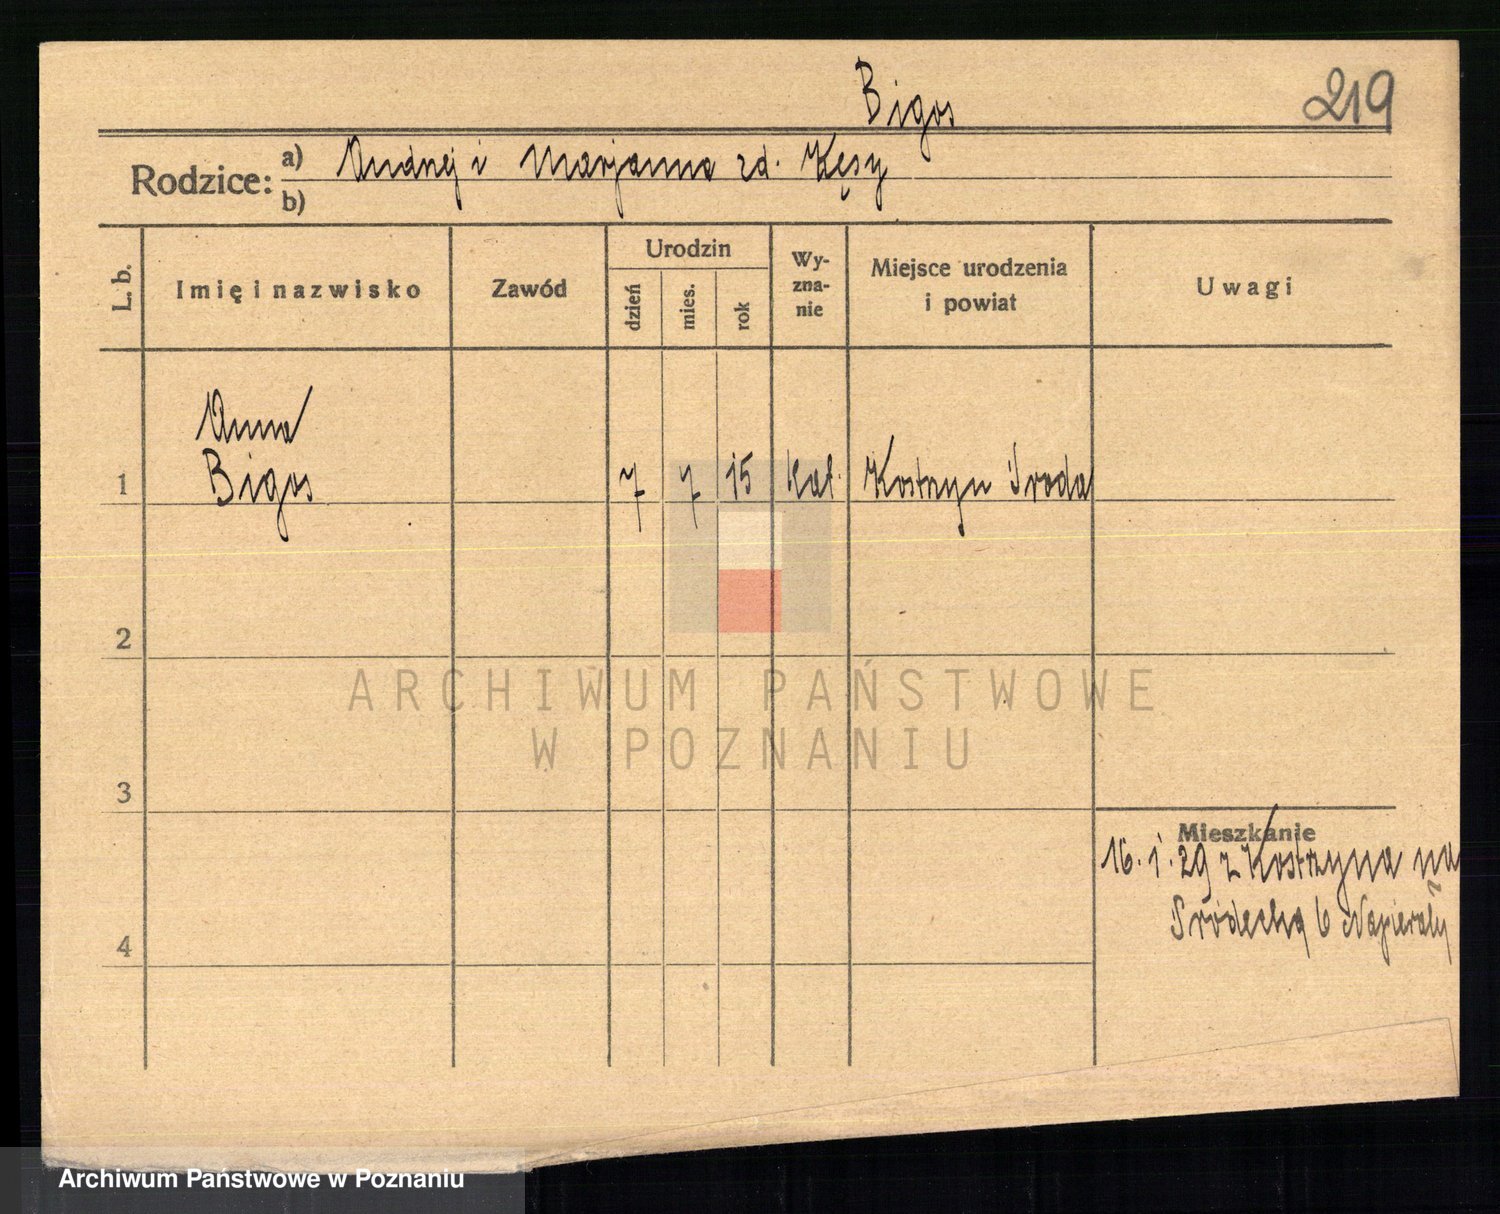 Bigos
219
Rodzice: a) Andrzej i Marjanna zd. Kęsy
b)
L. b.
Imię i nazwisko
Zawód
Urodzin
dzień
mies.
rok
Wy-
zna-
nie
Miejsce urodzenia
i powiat
Uwagi
Anna
1 Bigos 7 7 15 kat. Kostrzyn Środa
2
3
4
Mieszkanie
16. 1. 29 z Kostrzyna na
Śródecką 6 Napierały
ARCHIWUM PAŃSTWOWE
W POZNANIU
Archiwum Państwowe w Poznaniu